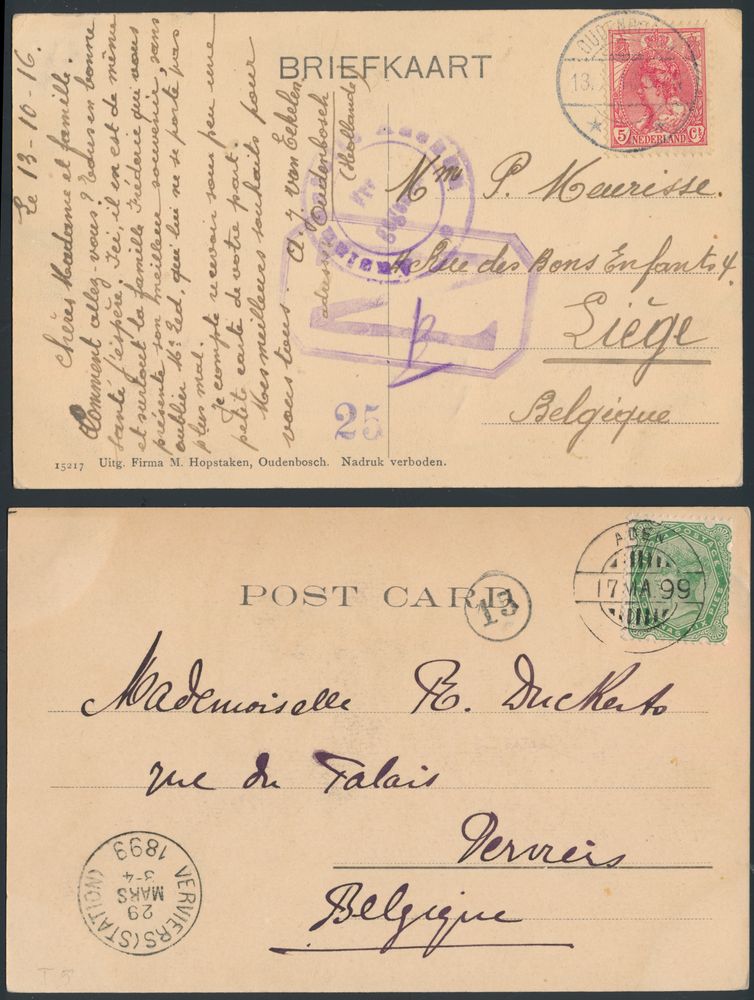 Le 13-10-16.
Chères Madame et famille.
Comment allez-vous? Toujours en bonne
santé j'espère. Ici, il en est de même
et surtout la famille Frederic qui vous
présente son meilleur souvenir, sans
oublier Mr Ed. qui lui ne se porte pas
plus mal.
Je compte recevoir sous peu une
petite carte de votre part.
Mes meilleurs souhaits pour
vous tous.
A. J. van Eekelen
adresse Oudenbosch
(Hollande)
BRIEFKAART
OUDENBO
13.X
5 Ct
NEDERLAND
Mme P. Meurisse.
4 Rue des Bons Enfants 4.
Liège
Belgique
25
15217 Uitg. Firma M. Hopstaken, Oudenbosch. Nadruk verboden.
POST CARD
13
ADEN
17 MA 99
POSTAGE
Mademoiselle R. Duckerts
rue du Palais
Verviers
Belgique
VERVIERS (STATION)
29
MARS
3-4
1899
T